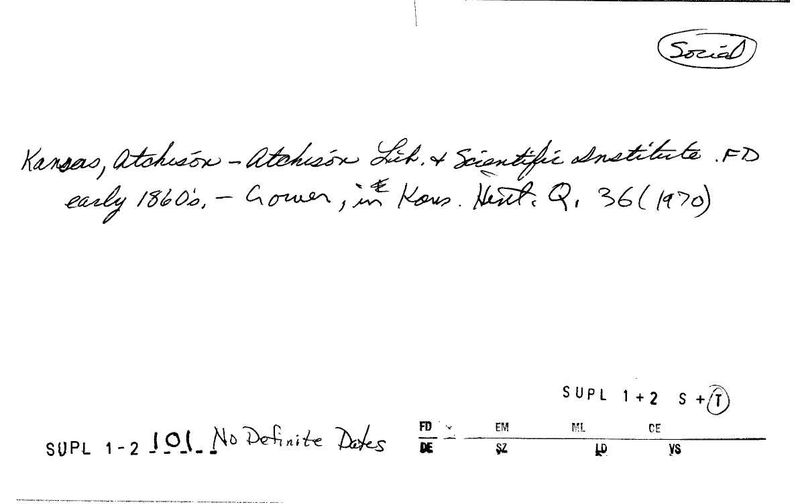 Social
Kansas, Atchison - Atchison Lib. & Scientific Institute. FD
early 1860's. - Gower, in Kans. Hist. Q. 36 (1970)
SUPL 1+2 S + T
SUPL 1-2 101 No Definite Dates
FD EM ML CE
DE SZ LD VS